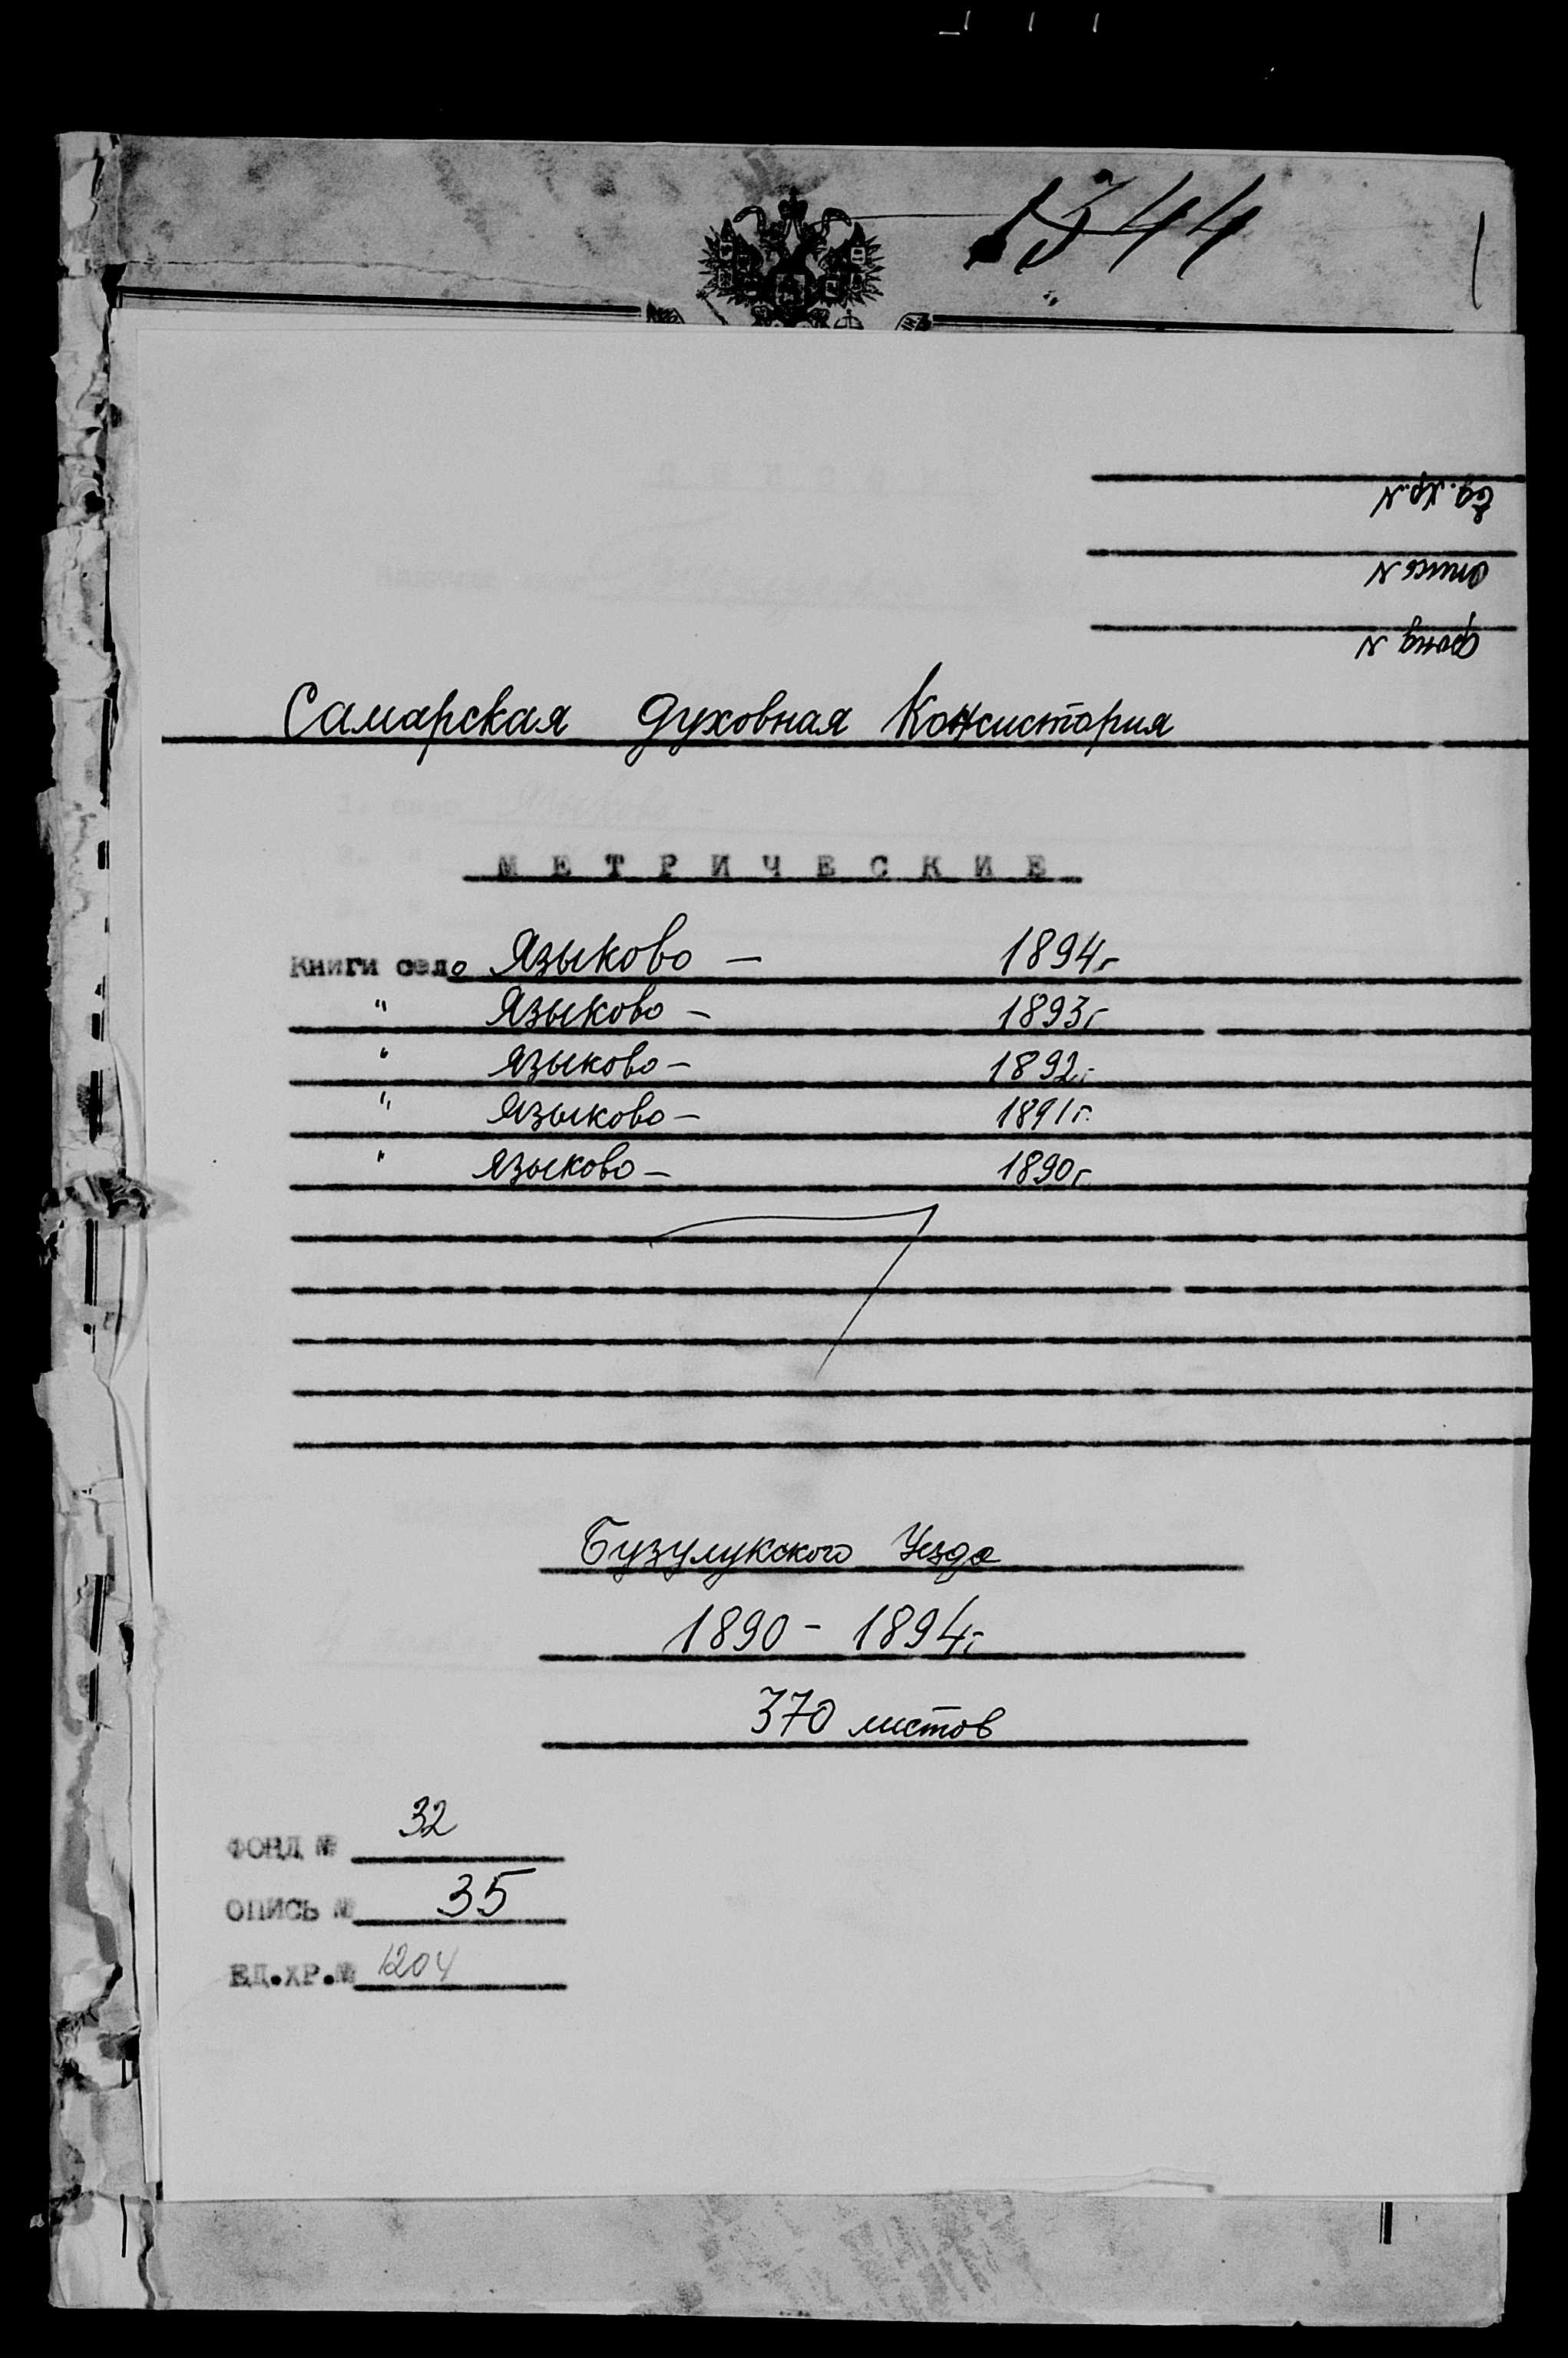 1344
Ед. хр. №
опись №
фонд №
Самарская духовная Консистория
МЕТРИЧЕСКИЕ
Книги село Языково — 1894г
" Языково — 1893г
" Языково — 1892г
" Языково — 1891г.
" Языково — 1890г
Бузулукского Уезда
1890 - 1894г
370 листов
ФОНД № 32
ОПИСЬ № 35
ЕД.ХР.№ 1204